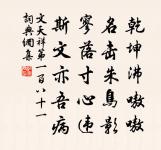 乾坤沸嗷嗷
名岳朱鳥影
寥落寸心違
斯文亦吾病
文天祥第一百八十一
詞典網集